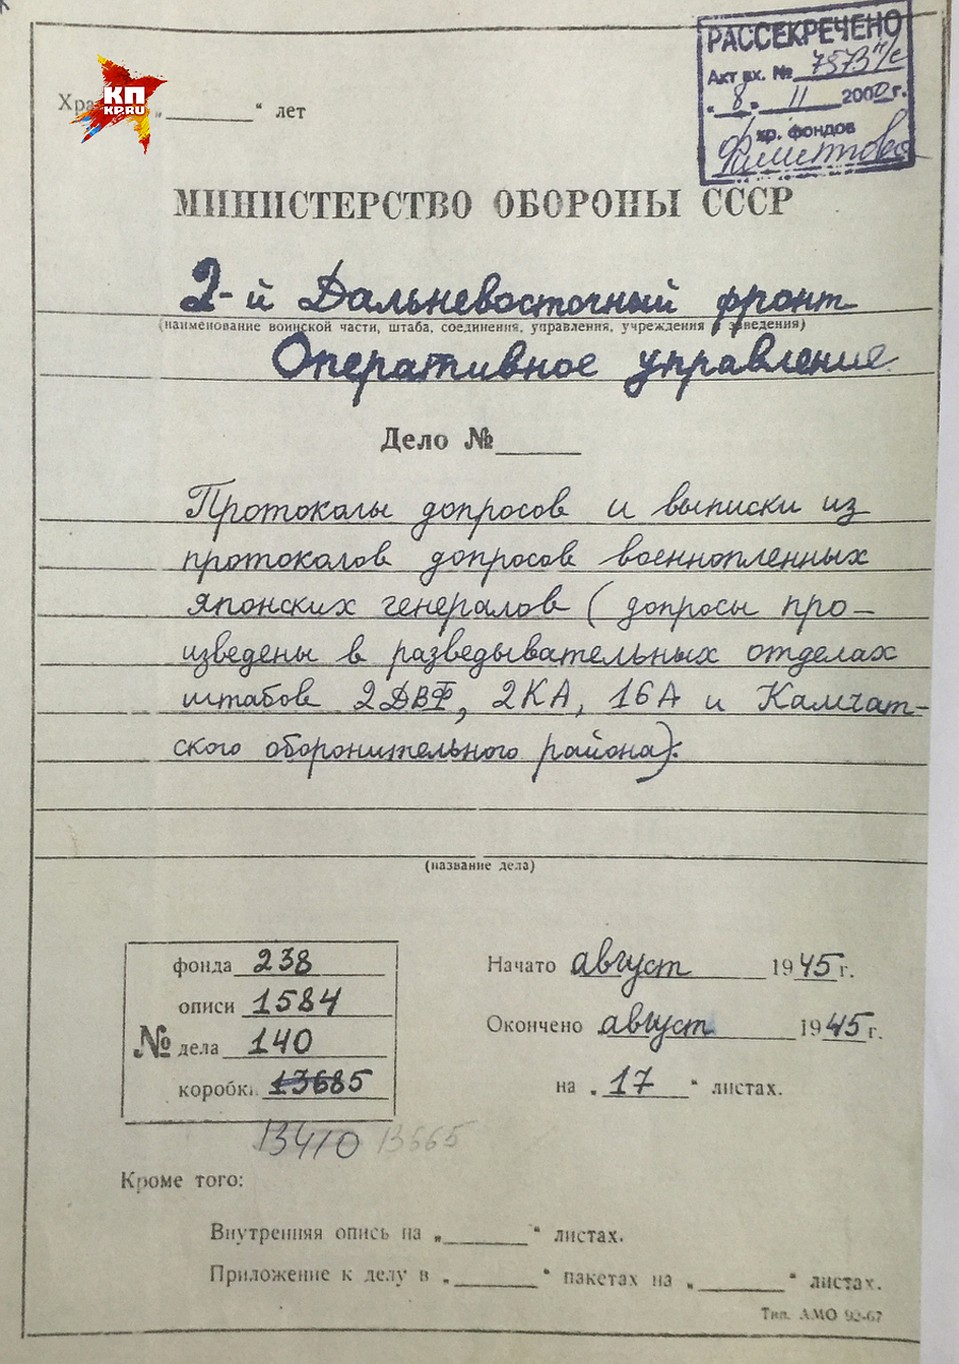 РАССЕКРЕЧЕНО
Акт вх. № 7573
"8" 11 2000г.
хр. фондов
КП
KP.RU
" лет
МИНИСТЕРСТВО ОБОРОНЫ СССР
2-й Дальневосточный фронт
(наименование воинской части, штаба, соединения, управления, учреждения и заведения)
Оперативное управление
Дело №
Протоколы допросов и выписки из
протоколов допросов военнопленных
японских генералов (допросы про-
изведены в разведывательных отделах
штабов 2ДВФ, 2КА, 16А и Камчат-
ского оборонительного района).
(название дела)
№
фонда 238
описи 1584
дела 140
коробки 13685
13410 13665
Начато август 1945 г.
Окончено август 1945 г.
на „17" листах.
Кроме того:
Внутренняя опись на „ " листах.
Приложение к делу в „ " пакетах на „ " листах.
Тип. АМО 92-67